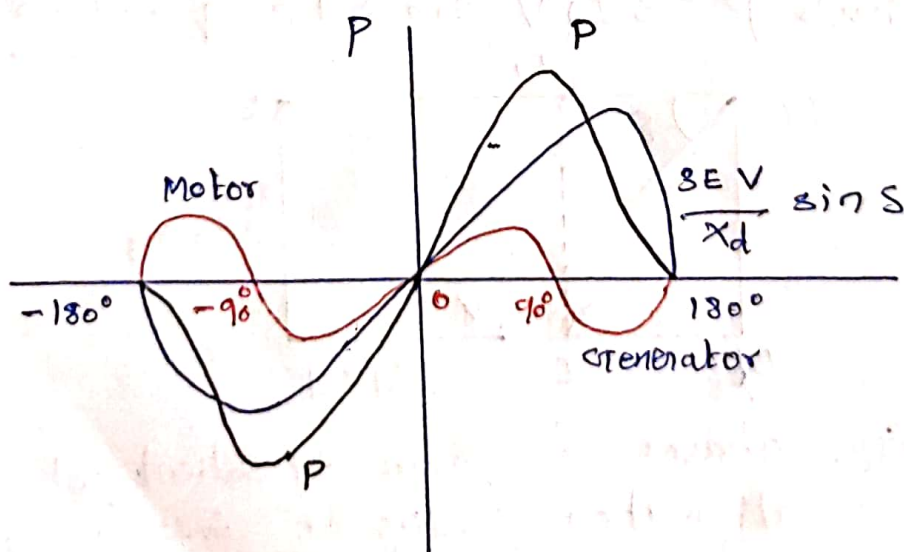 P
P
Motor
3EV
Xd
sin S
-180°
-90°
0
90°
180°
Generator
P